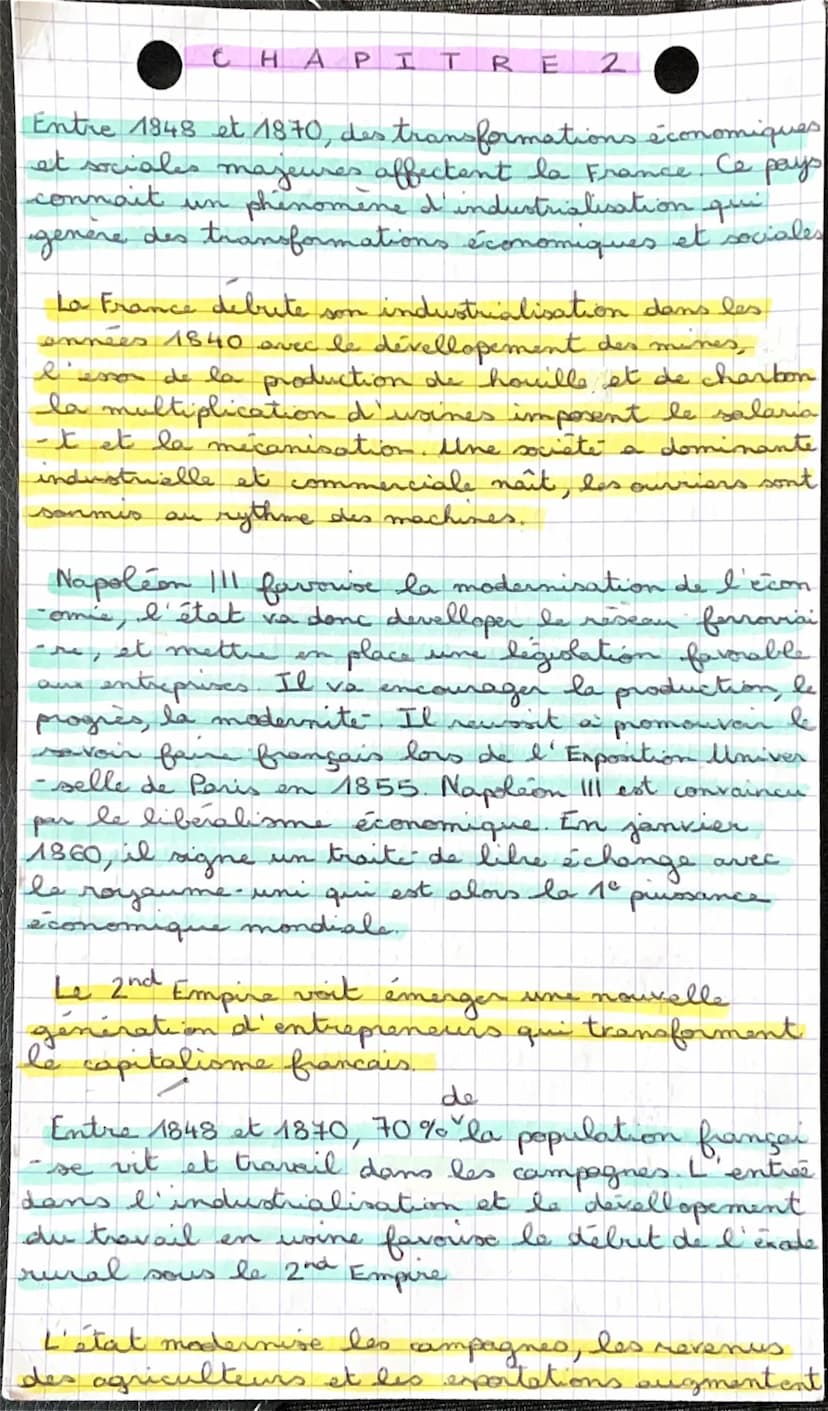 CHAPITRE 2
Entre 1848 et 1870, des transformations économiques
et sociales majeures affectent la France. Ce pays
connait un phénomène d'industrialisation qui
génère des transformations économiques et sociales
La France débute son industrialisation dans les
années 1840 avec le dévellopement des mines,
l'essor de la production de houille et de charbon
la multiplication d'usines imposent le salaria
-t et la mécanisation. Une société a dominante
industrielle et commerciale naît, les ouvriers sont
soumis au rythme des machines.
Napoléon III favorise la modernisation de l'écon
-omie, l'état va donc developper le réseau ferroviai
-re, et mettre en place une législation favorable
aux entreprises. Il va encourager la production, le
progrès, la modernité. Il reussit à promouvoir le
savoir faire français lors de l'Exposition Univer
-selle de Paris en 1855. Napoléon III est convaincu
par le libéralisme économique. En janvier
1860, il signe un traité de libre échange avec
le royaume-uni qui est alors la 1e puissance
économique mondiale.
Le 2nd Empire voit émerger une nouvelle
génération d'entrepreneurs qui transforment
le capitalisme francais.
Entre 1848 et 1870, 70% de la population françai
-se vit et travail dans les campagnes. L'entrée
dans l'industrialisation et le dévellopement
du travail en usine favorise le début de l'éxode
rural sous le 2nd Empire
L'état modernise les campagnes, les revenus
des agriculteurs et les exportations augmentent